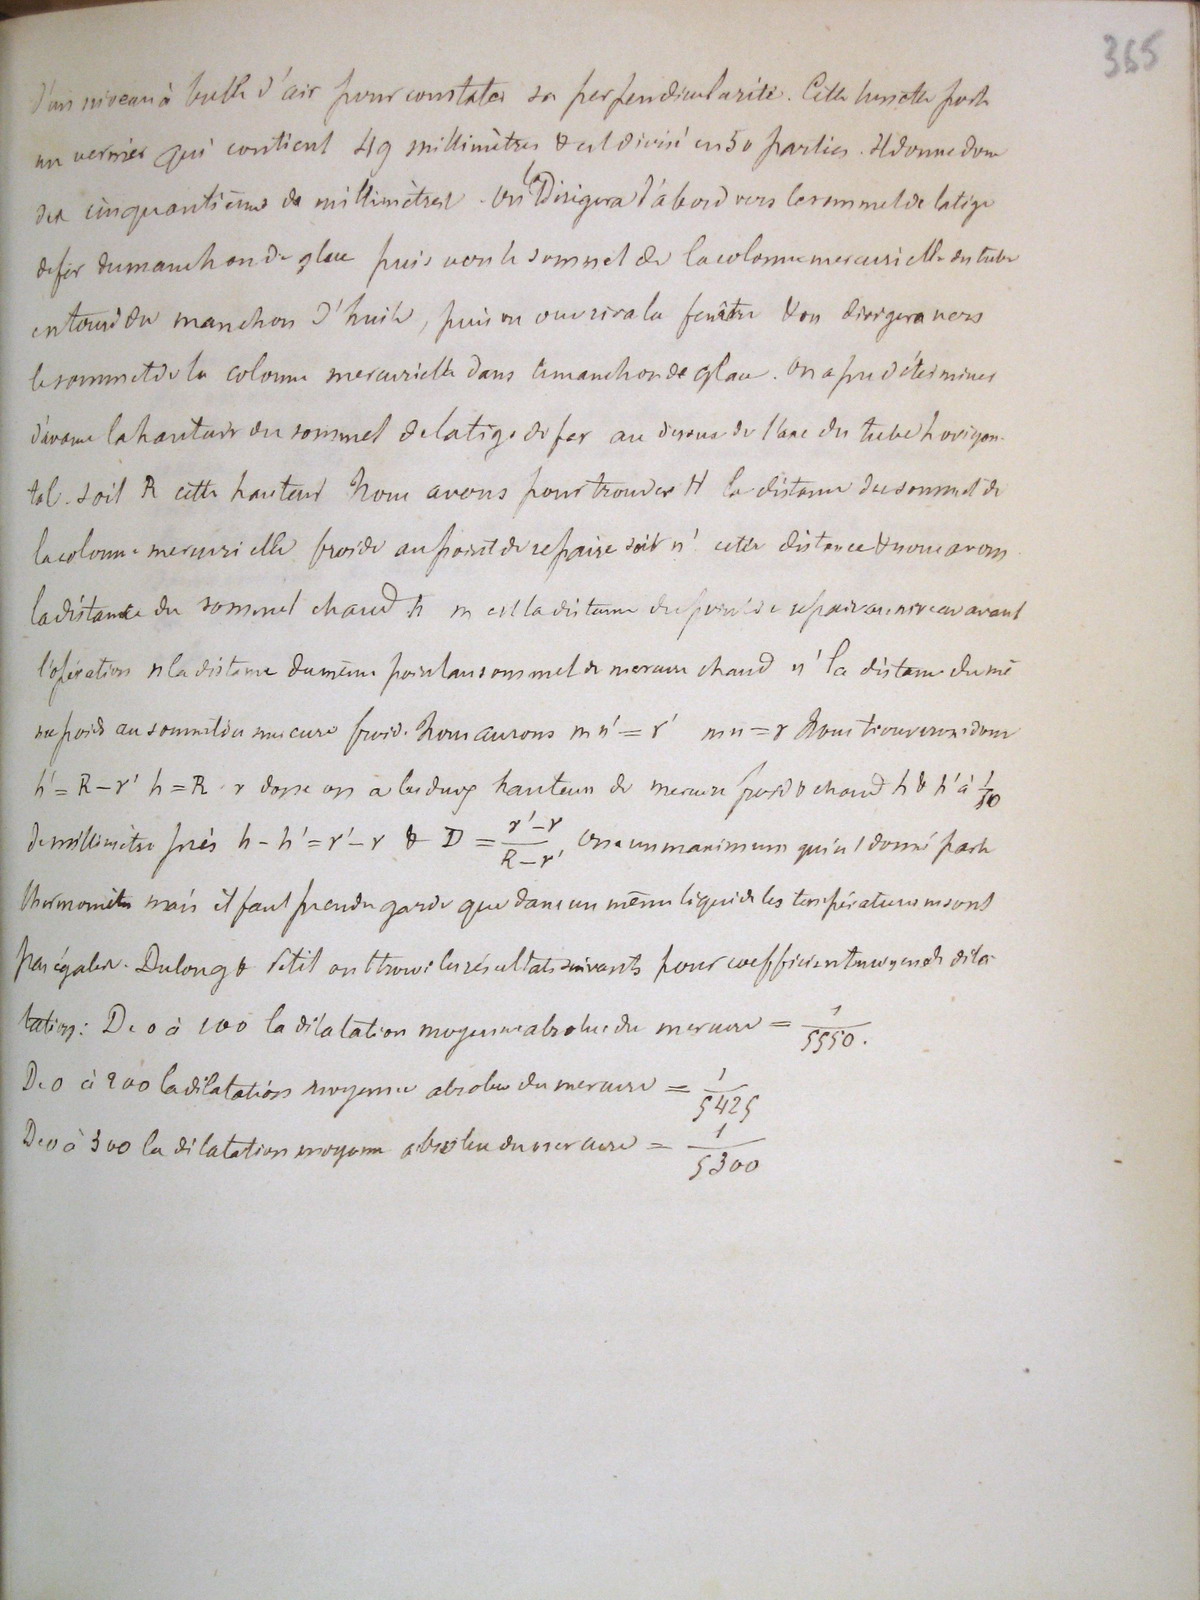 365
d'un niveau à bulle d'air pour constater sa perpendicularité. Cette lunette porte
un vernier qui contient 49 millimètres & est divisé en 50 parties. Il donne donc
des cinquantièmes de millimètres. On la dirigera d'abord vers le sommet de la tige
de fer du manchon de glace puis vers le sommet de la colonne mercurielle du tube
entouré du manchon d'huile, puis on ouvrira la fenêtre & on dirigera vers
le sommet de la colonne mercurielle dans le manchon de glace. On a pu déterminer
d'avance la hauteur du sommet de la tige de fer au dessus de l'axe du tube horizon-
tal. Soit R cette hauteur Nous avons pour trouver H la distance du sommet de
la colonne mercurielle froide au point de repaire soit n' cette distance & nous avons
la distance du sommet chaud h m est la distance du point de repaire au niveau avant
l'opération n la distance du même point au sommet de mercure chaud n' la distance du mê
me point au sommet du mercure froid. Nous aurons mn' = r' mn = r Nous trouverons donc
h' = R - r' h = R - r donc on a les deux hauteurs de mercure froid & chaud h & h' à 1/50
de millimètre près h - h' = r' - r & D = r' - r / R - r' On a un maximum qui est donné par le
thermomètre mais il faut prendre garde que dans un même liquide les températures ne sont
pas égales. Dulong & Petit ont trouvé les résultats suivants pour coefficient moyen de dila-
tation: De 0 à 100 la dilatation moyenne absolue du mercure = 1/5550.
De 0 à 200 la dilatation moyenne absolue du mercure = 1/5425
De 0 à 300 la dilatation moyenne absolue du mercure = 1/5300